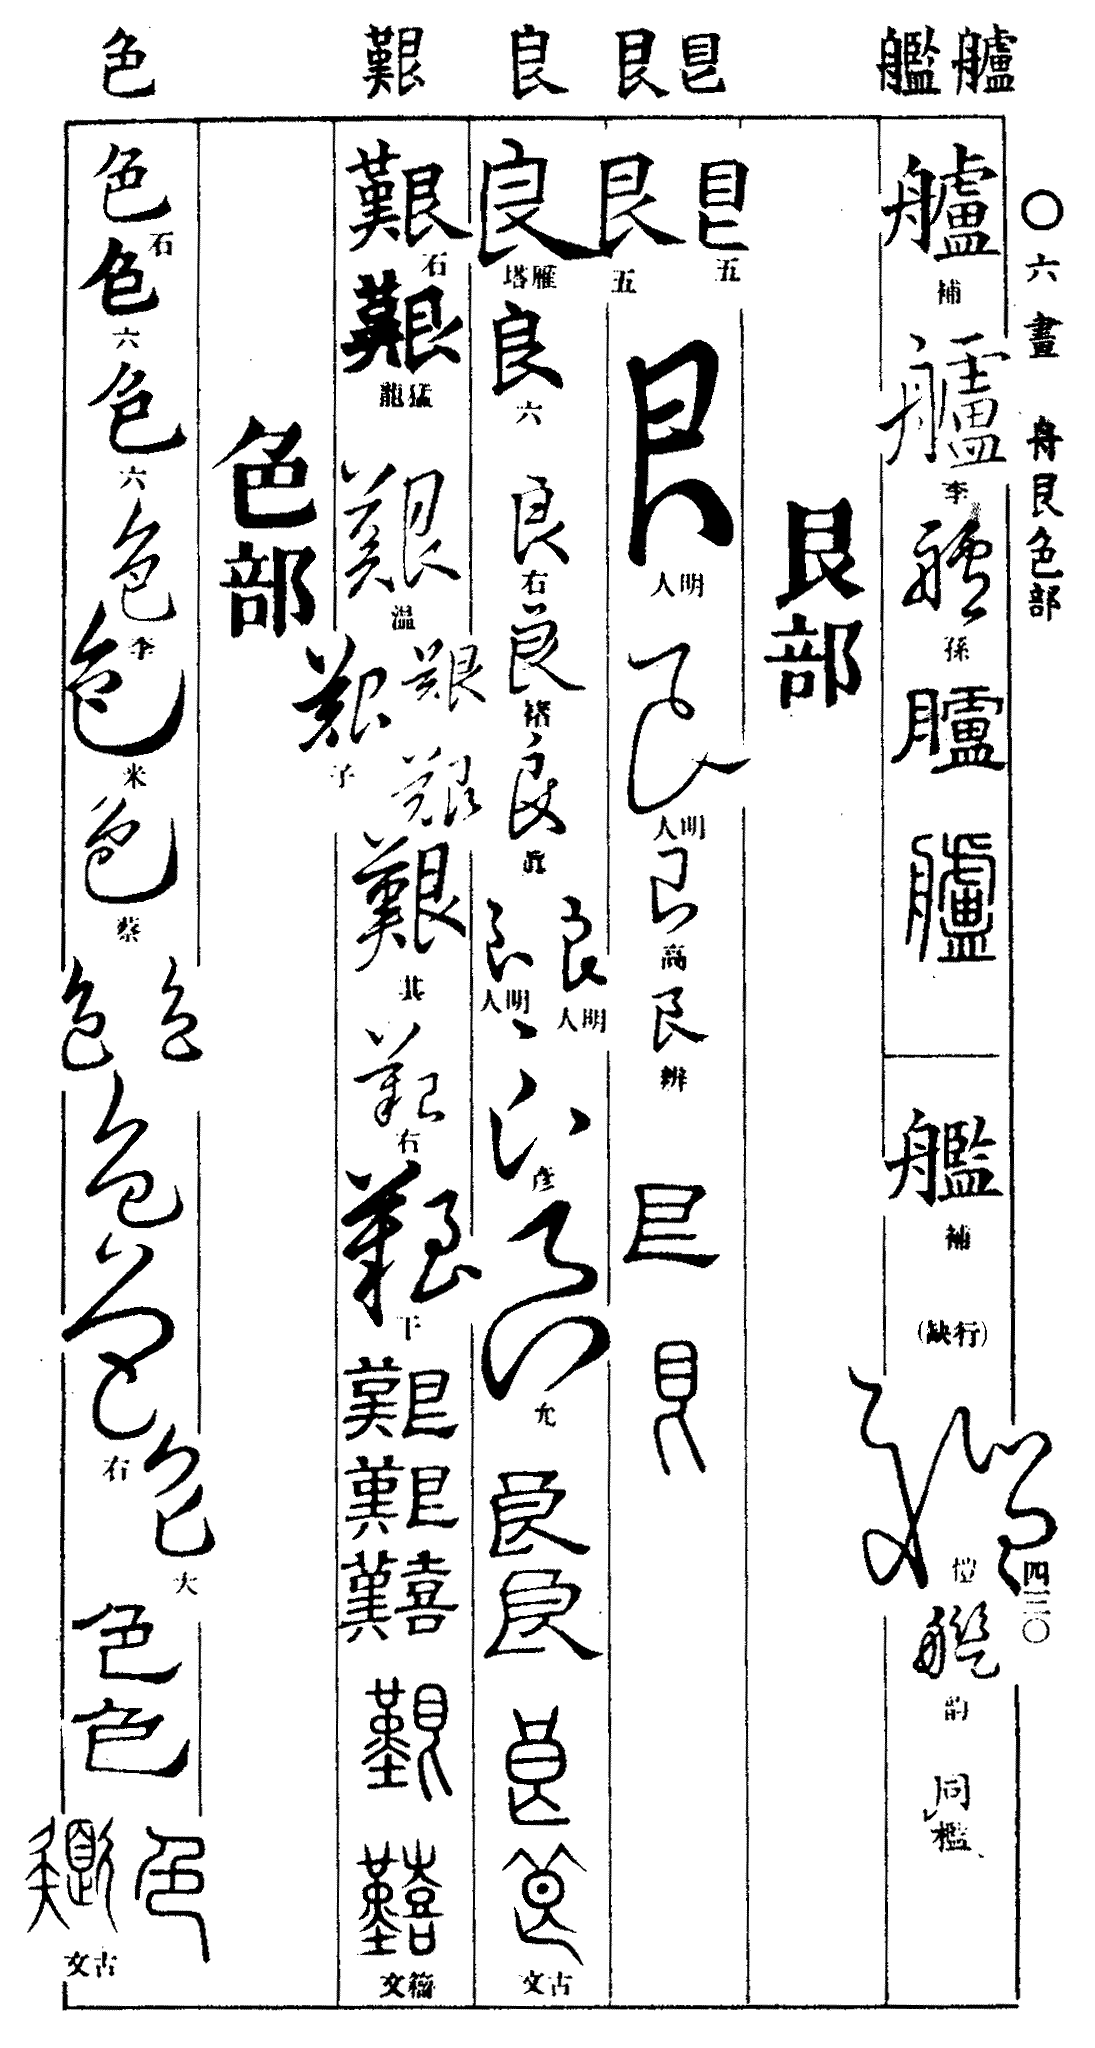 艫 艦 皀 艮 良 艱 色
〇六畫 舟艮色部
四三〇
艫
補
艫
李
艫
孫
艫
艫
艦
補
(行缺)
艦
愷
艦
韵
同檻
艮部
皀
五
艮
五
艮
明人
艮
明人
艮
高
艮
辨
艮
艮
良
雁塔
良
六
良
右
良
褚
良
眞
良
明人
良
明人
良
彦
良
允
良
良
良
良
古文
艱
石
艱
猛龍
艱
温
艱
艱
子
艱
艱
其
艱
右
艱
下
艱
艱
囏
艱
囏
籀文
色部
色
石
色
六
色
六
色
李
色
米
色
蔡
色
色
色
色
右
色
大
色
色
色
古文